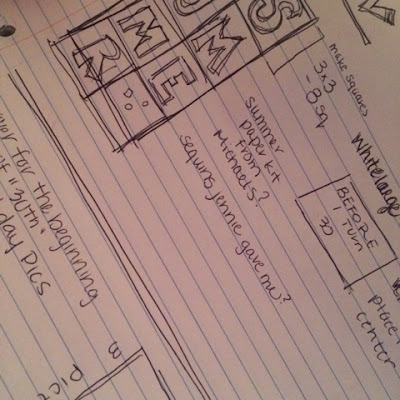 SUM
MER
make squares
3x3
- 8 sq
summer
paper kit
from
Michaels?
sequins jennie gave me?
White large
BEFORE
I TURN
30
place
center
for the beginning
of "30th"
day pics